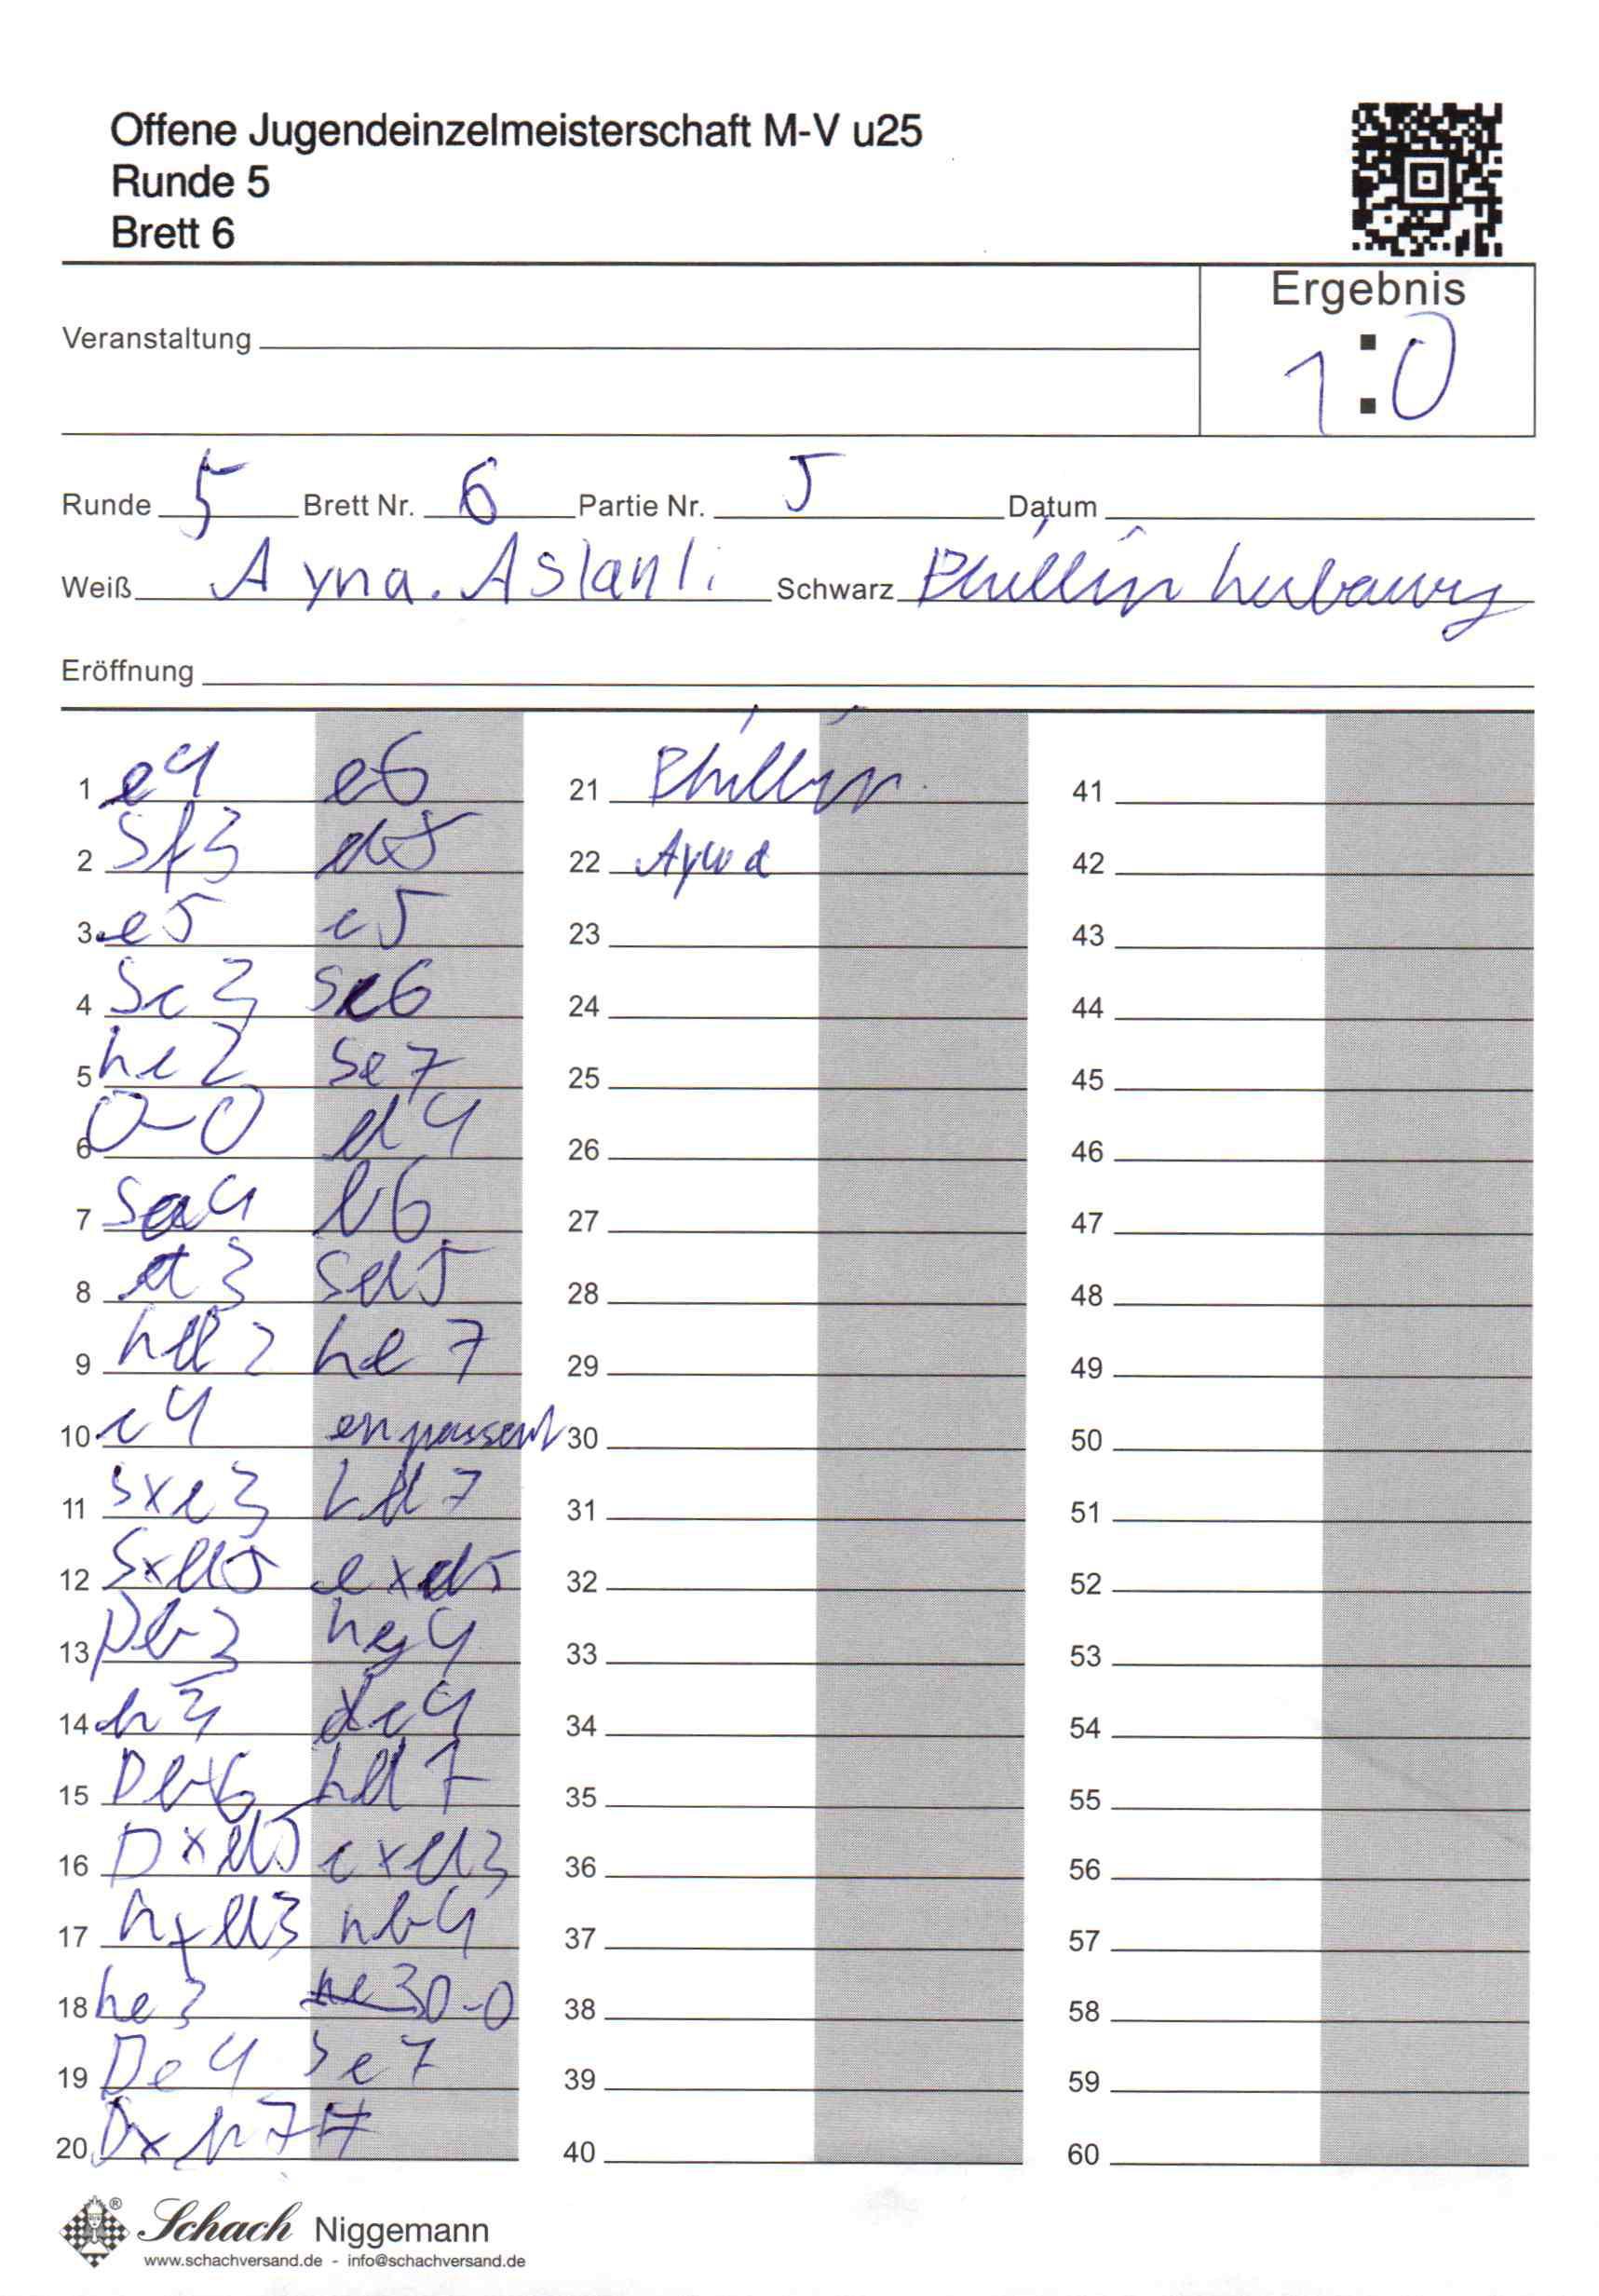 Offene Jugendeinzelmeisterschaft M-V u25
Runde 5
Brett 6
Ergebnis
1:0
Veranstaltung
Runde 5 Brett Nr. 6 Partie Nr. 5 Datum
Weiß Ayna. Aslanli Schwarz Phillip
Eröffnung
1 e4 e6
2 Sf3 d5
3 e5 c5
4 Sc3 Sc6
5 Le2 Se7
6 0-0 d4
7 Sa4 b6
8 d3 Sd5
9 Ld2 Le7
10 c4 en passent
11 Sxc3 Ld7
12 Sxd5 exd5
13 Db3 Lg4
14 h3 c4
15 Dxb6 Ld7
16 Dxd5 cxd3
17 Lxd3 Lb4
18 Le3 0-0
19 De4 Se7
20 Dxh7#
21 Phillip
22 Ayna
23
24
25
26
27
28
29
30
31
32
33
34
35
36
37
38
39
40
41
42
43
44
45
46
47
48
49
50
51
52
53
54
55
56
57
58
59
60
Schach Niggemann
www.schachversand.de - info@schachversand.de